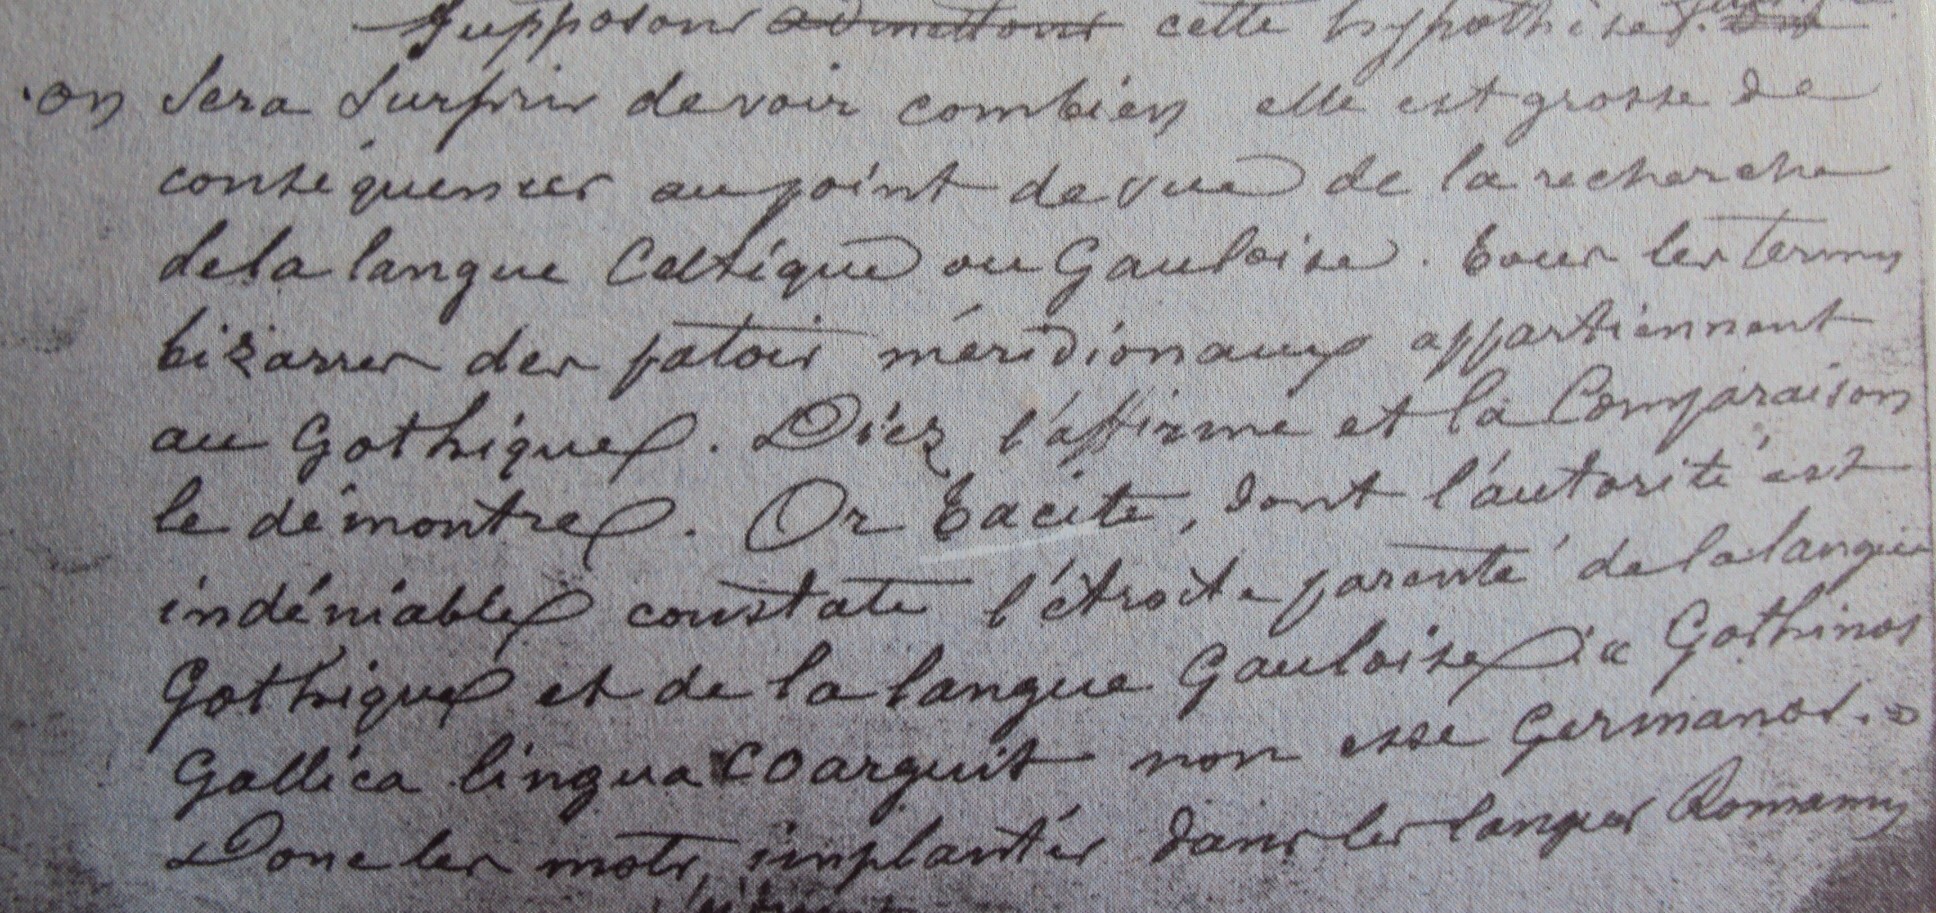 Supposons admettons cette hypothèse.
on sera surpris de voir combien elle est grosse de
conséquences au point de vue de la recherche
de la langue Celtique ou Gauloise. Tous les termes
bizarres des patois méridionaux appartiennent
au Gothique. Diez l'affirme et la Comparaison
le démontre. Or Tacite, dont l'autorité est
indéniable constate l'étroite parenté de la langue
Gothique et de la langue Gauloise : « Gothinos
Gallica lingua coarguit non esse Germanos. »
Donc les mots, implantés dans les langues Romanes